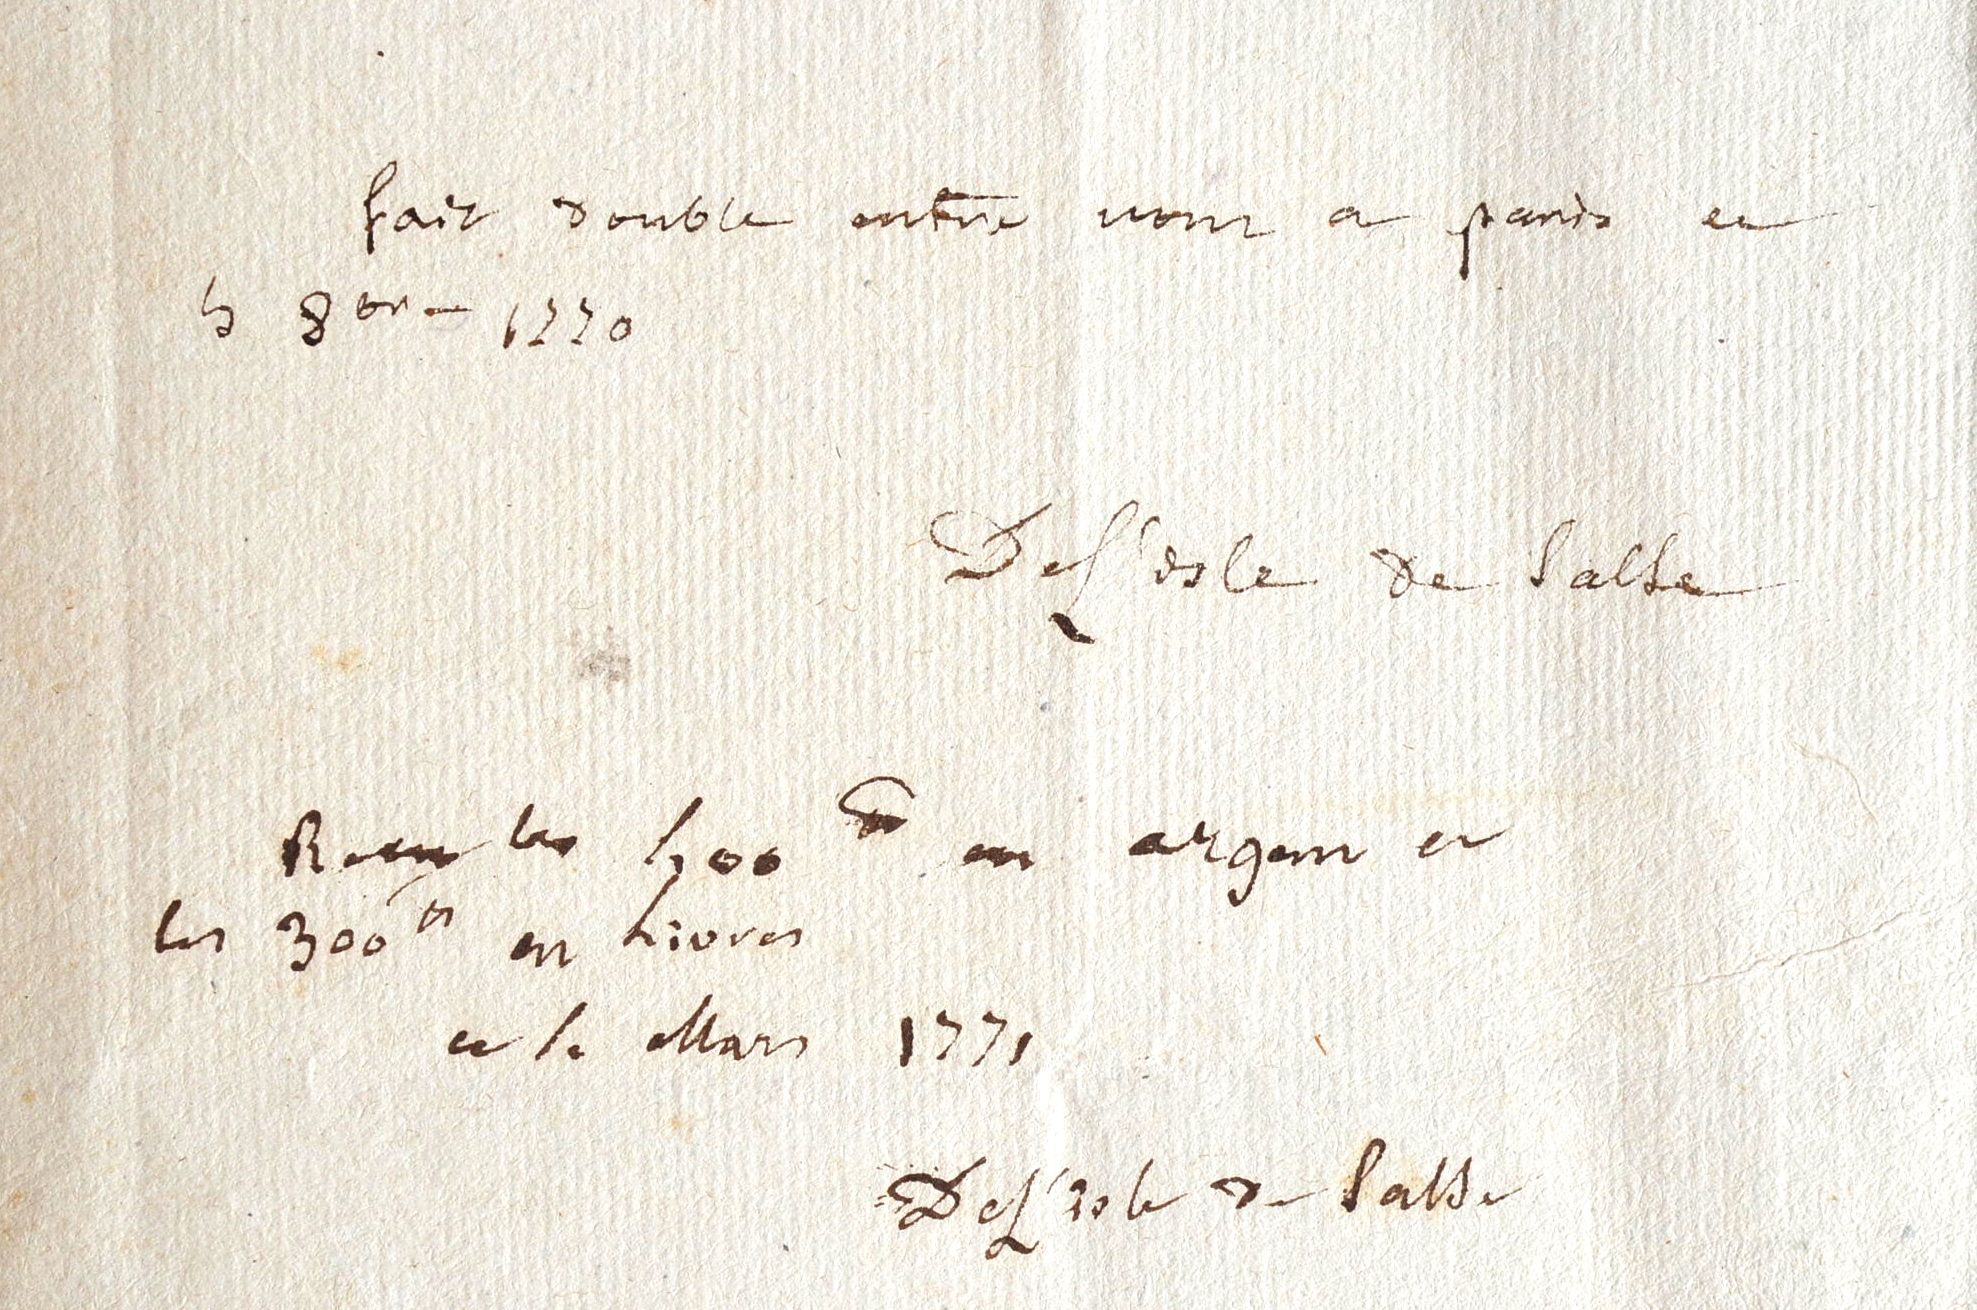 fait double entre nous a paris ce
5 8bre 1770
DeL'isle de Salle
Recu les 500 tt en argent et
les 300 tt en livres
ce 1e Mars 1771
DeL'isle de Salle